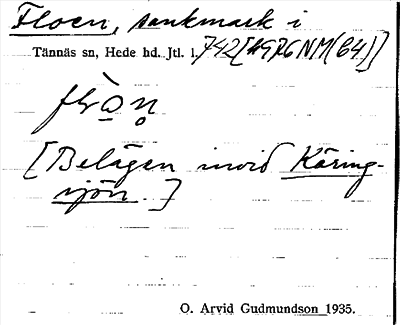 Floen, sankmark i
Tännäs sn, Hede hd. Jtl. l. 742
flò̱n̥
[Belägen invid Käring-
sjön.]
O. Arvid Gudmundson 1935.